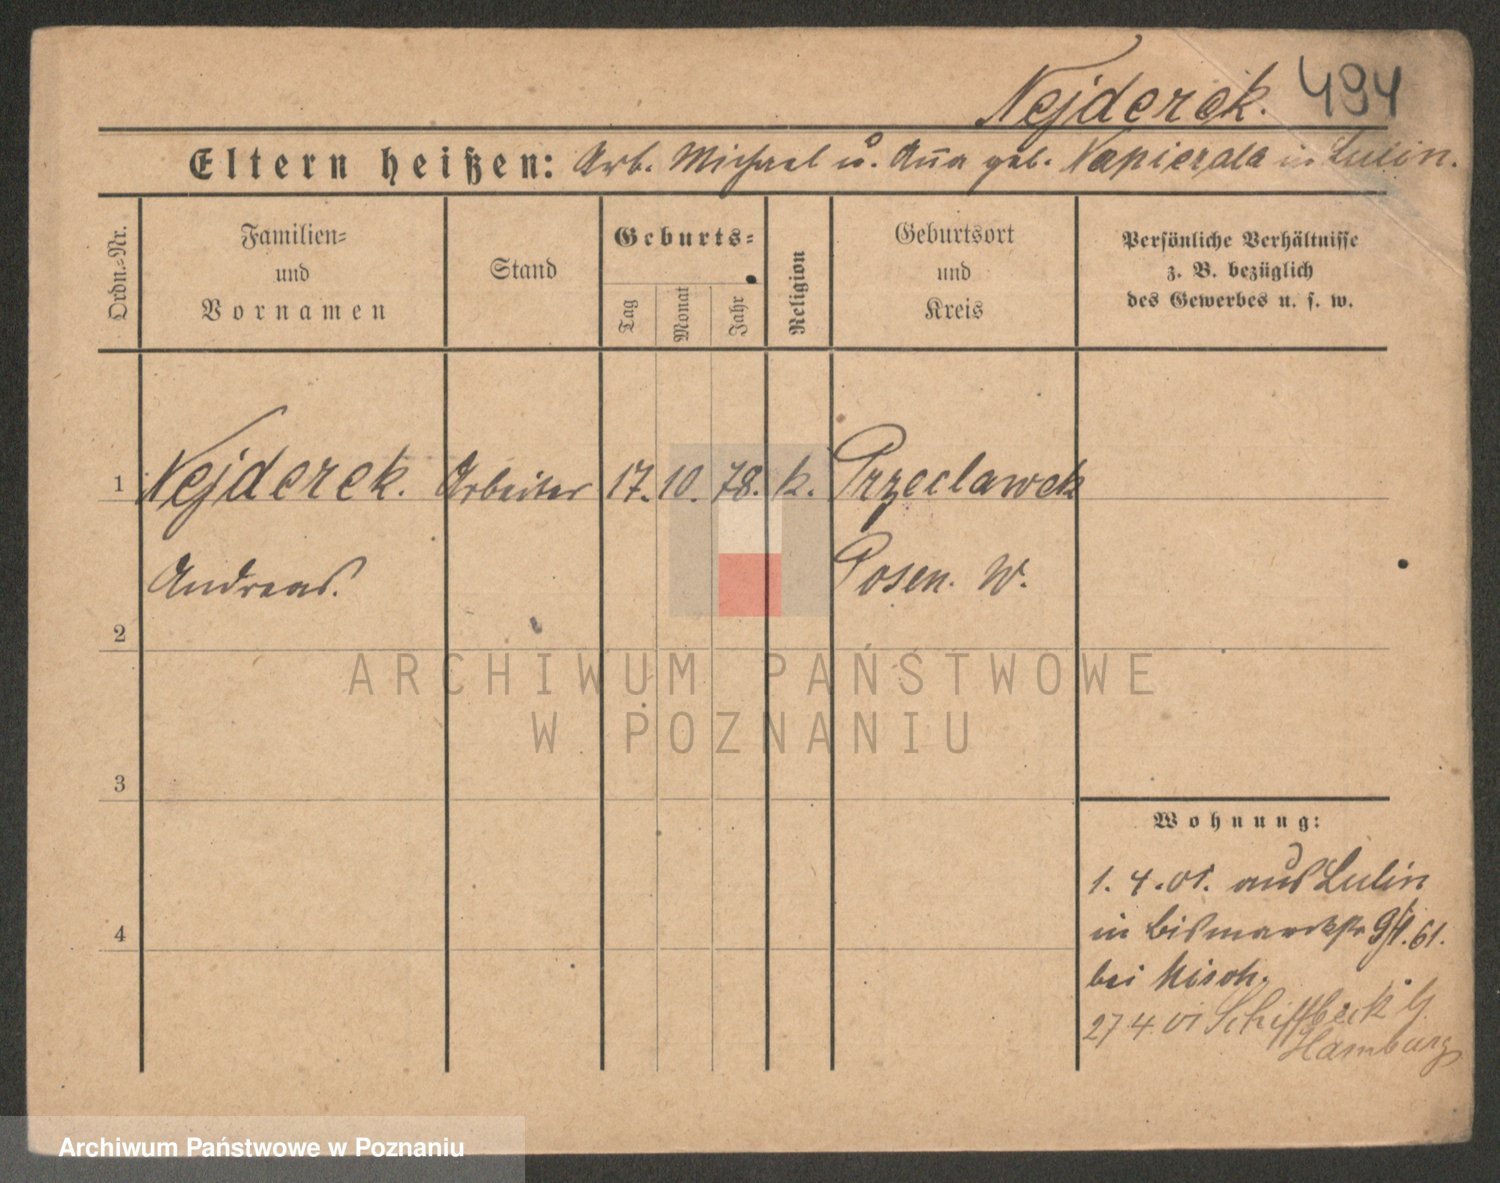 Nejderek. 494
Eltern heißen: Arb. Michael u. Anna geb. Napierala in Lulin.
Ordn.=Nr.
Familien=
und
Vornamen
Stand
Geburts=
Tag
Monat
Jahr
Religion
Geburtsort
und
Kreis
Persönliche Verhältnisse
z. B. bezüglich
des Gewerbes u. s. w.
1 Nejderek. Arbeiter 17. 10. 78. k. Przeclawek
Andreas. Posen. W.
2
ARCHIWUM PAŃSTWOWE
W POZNANIU
3
Wohnung:
1. 4. 01. aus Lulin
4
in Bismarckstr 9/4. 61.
bei
27 4 01 Schiffbeck b/
Hamburg
Archiwum Państwowe w Poznaniu